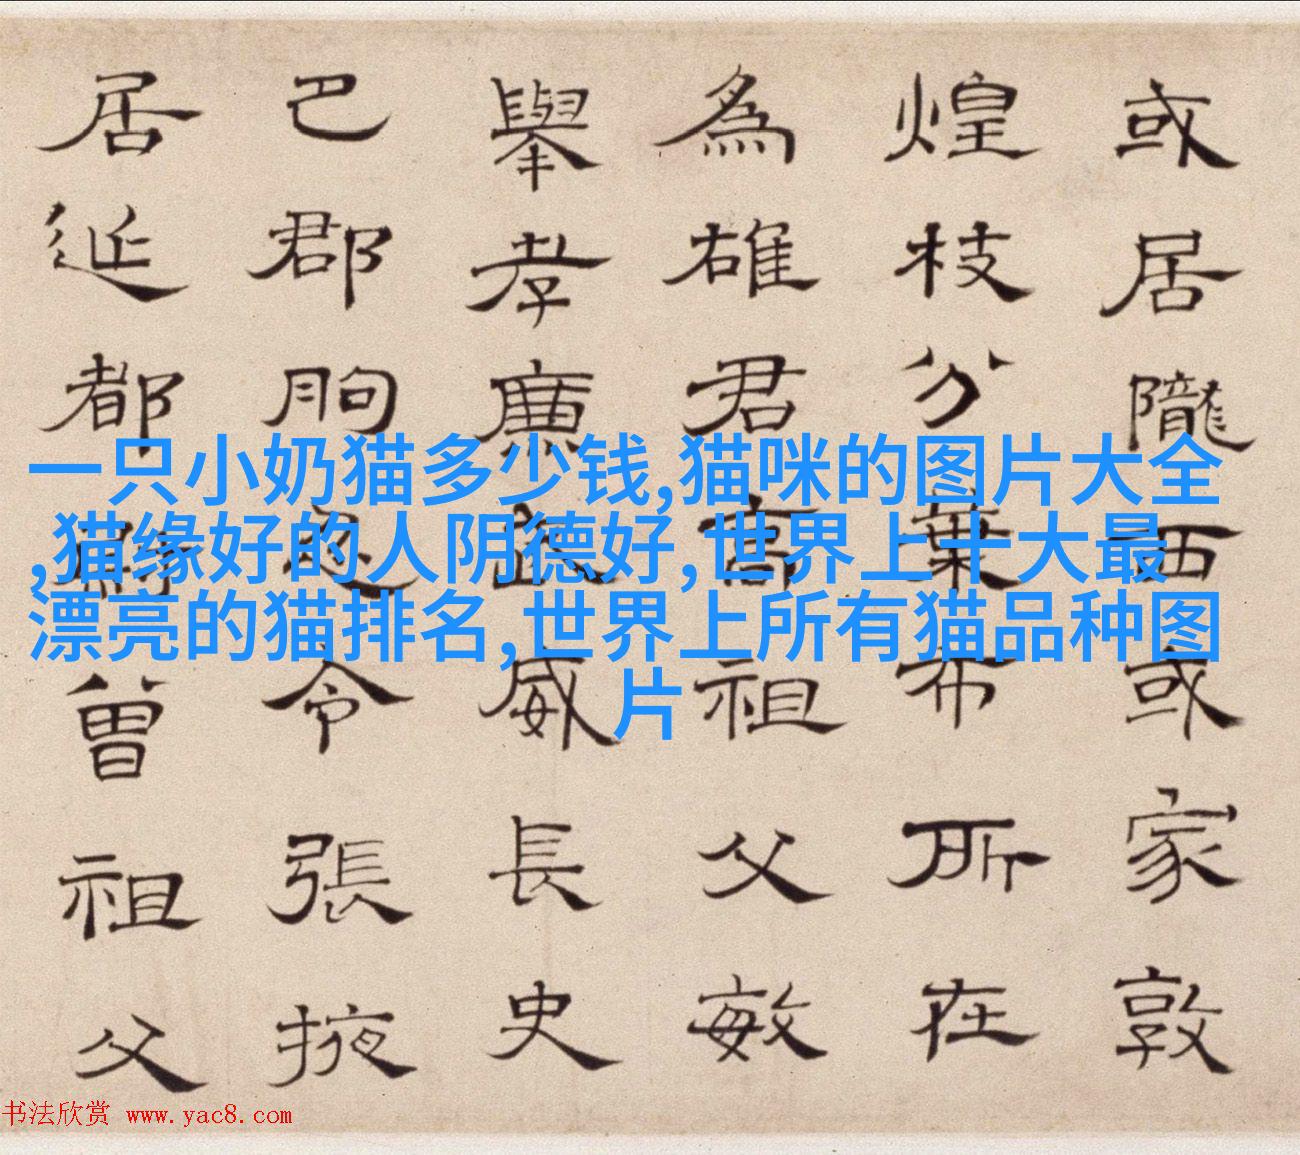 或居隴西或家敦
煌枝分葉布所在
為雄君高祖父敏
舉孝廉武威長史
巴郡朐忍令張掖
居延都尉曾祖父
一只小奶猫多少钱,猫咪的图片大全
,猫缘好的人阴德好,世界上十大最
漂亮的猫排名,世界上所有猫品种图
片
书法欣赏 www.yac8.com